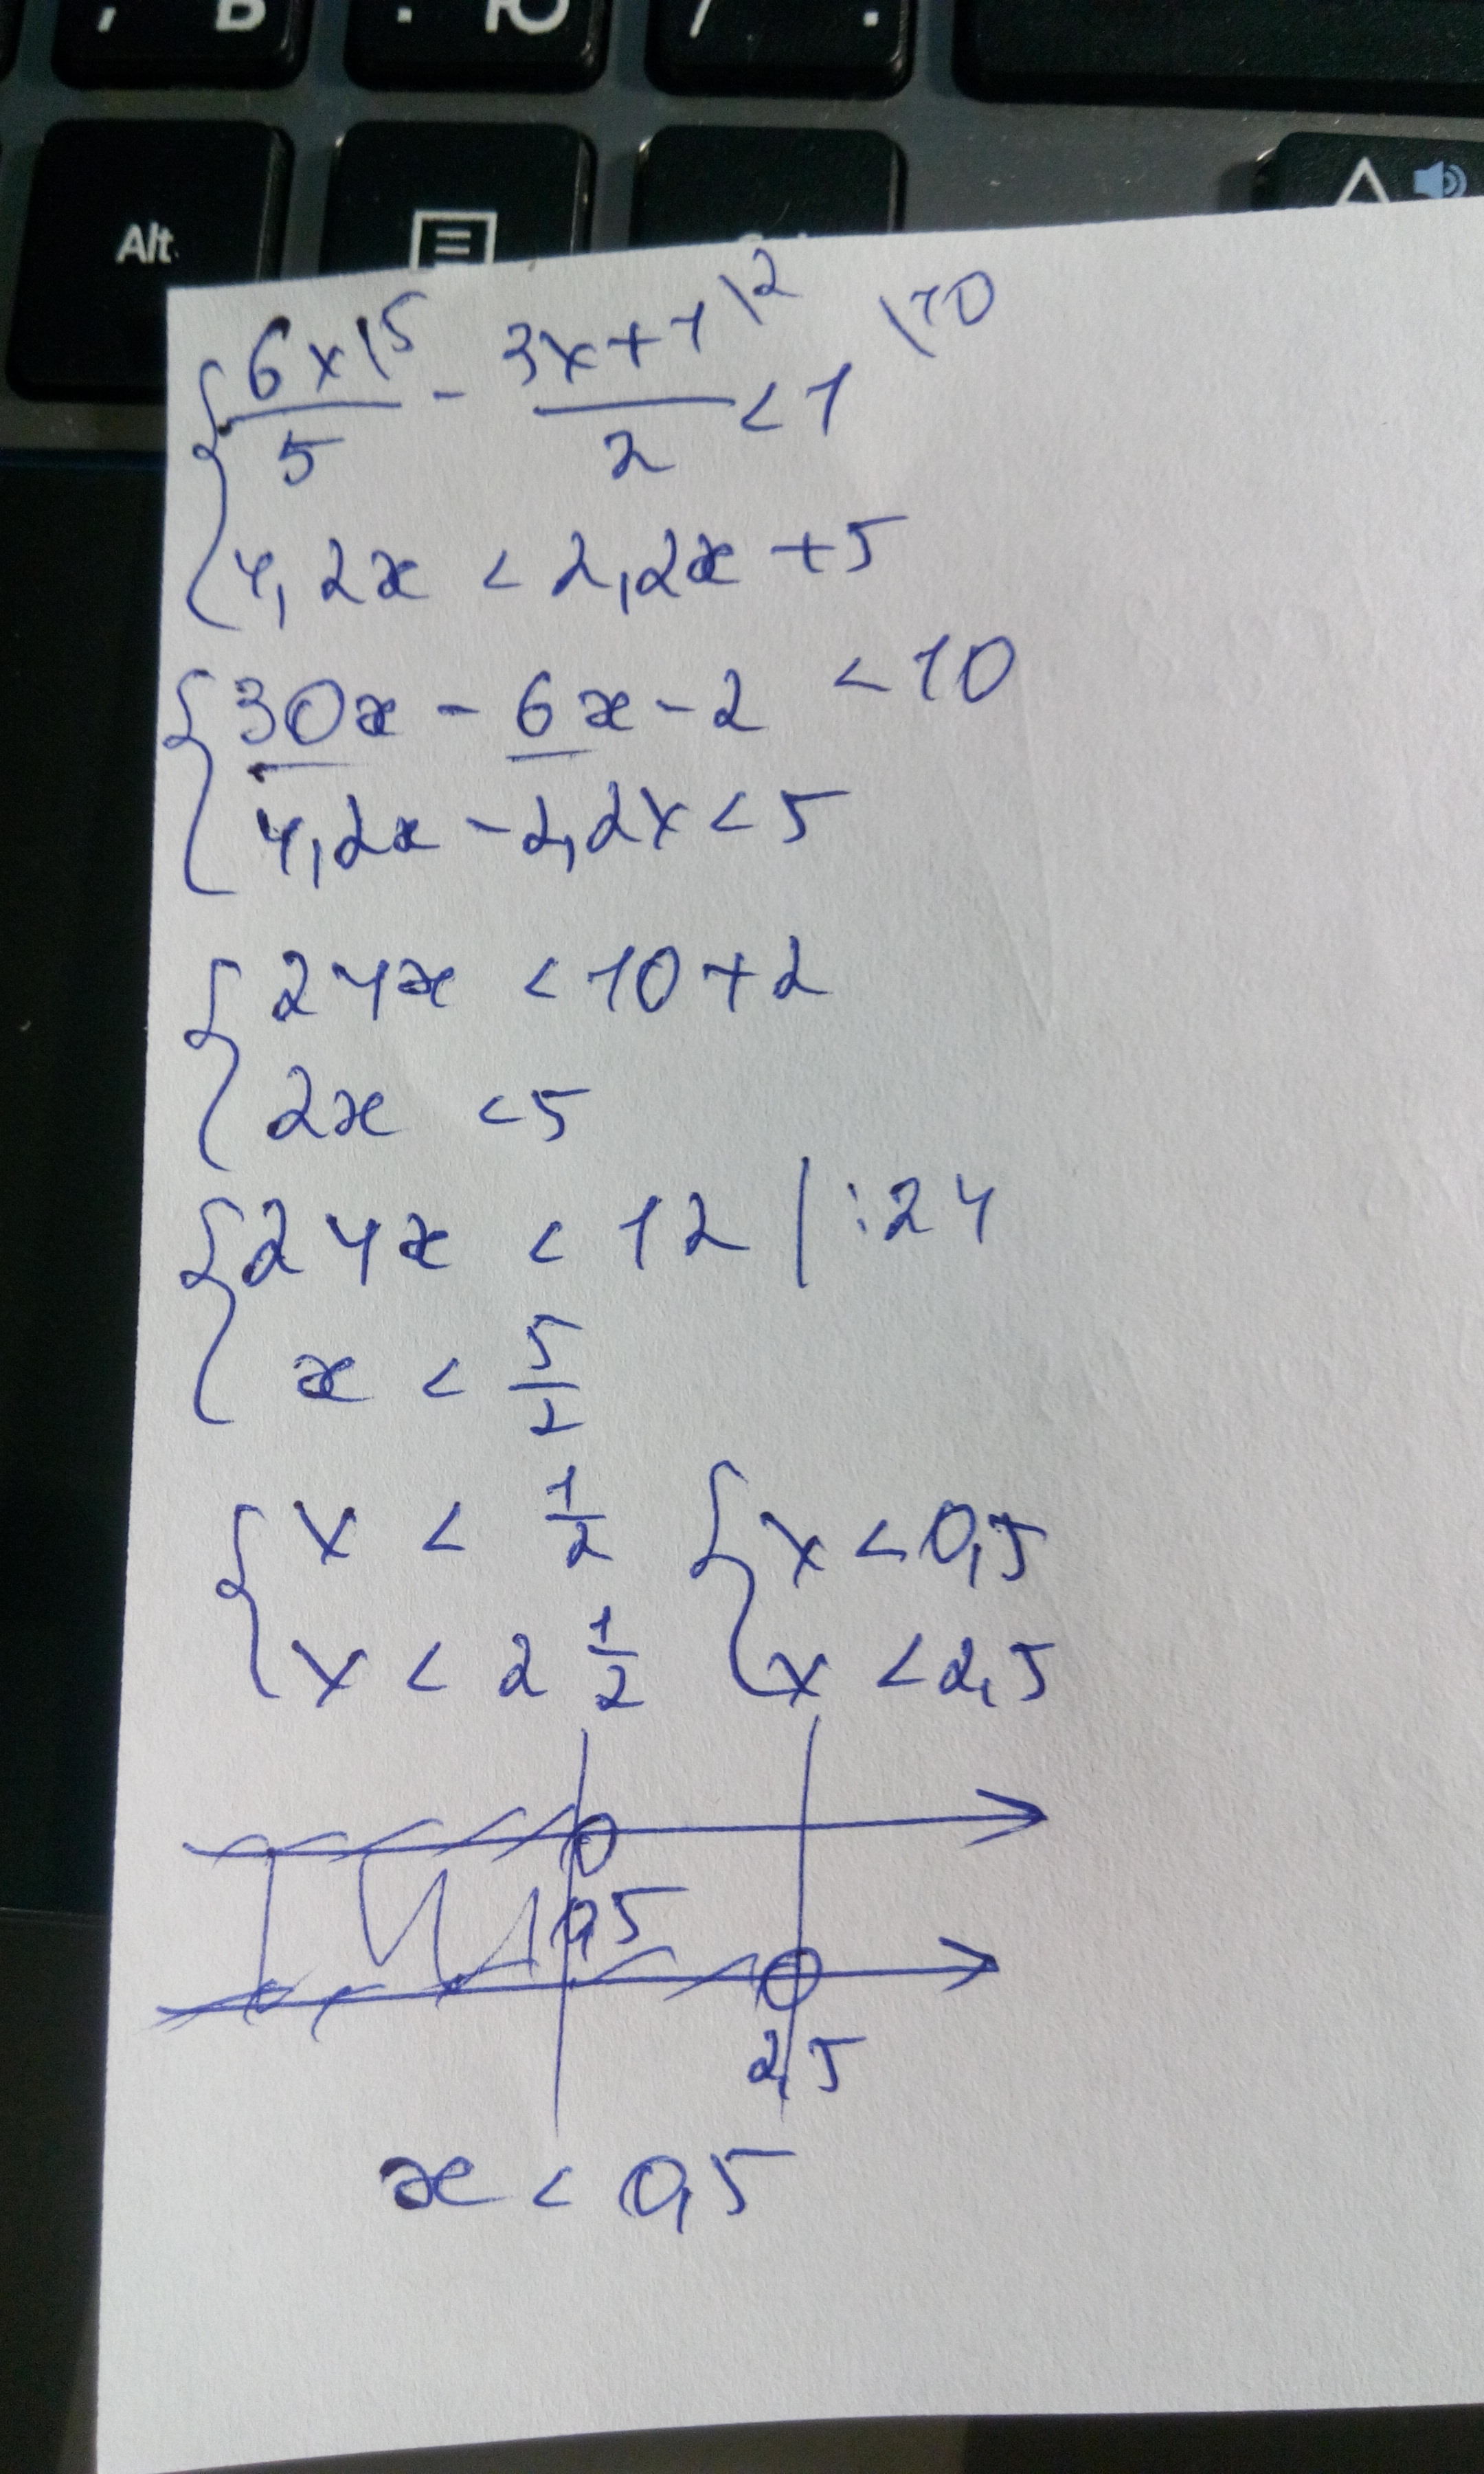 , Б . Ю / .
Alt
{ 6x\5/5 - 3x+1\2/2 < 1 \10
4,2x < 2,2x + 5
{ 30x - 6x - 2 < 10
4,2x - 2,2x < 5
{ 24x < 10 + 2
2x < 5
{ 24x < 12 | :24
x < 5/2
{ x < 1/2 { x < 0,5
x < 2 1/2 x < 2,5
0,5
2,5
x < 0,5